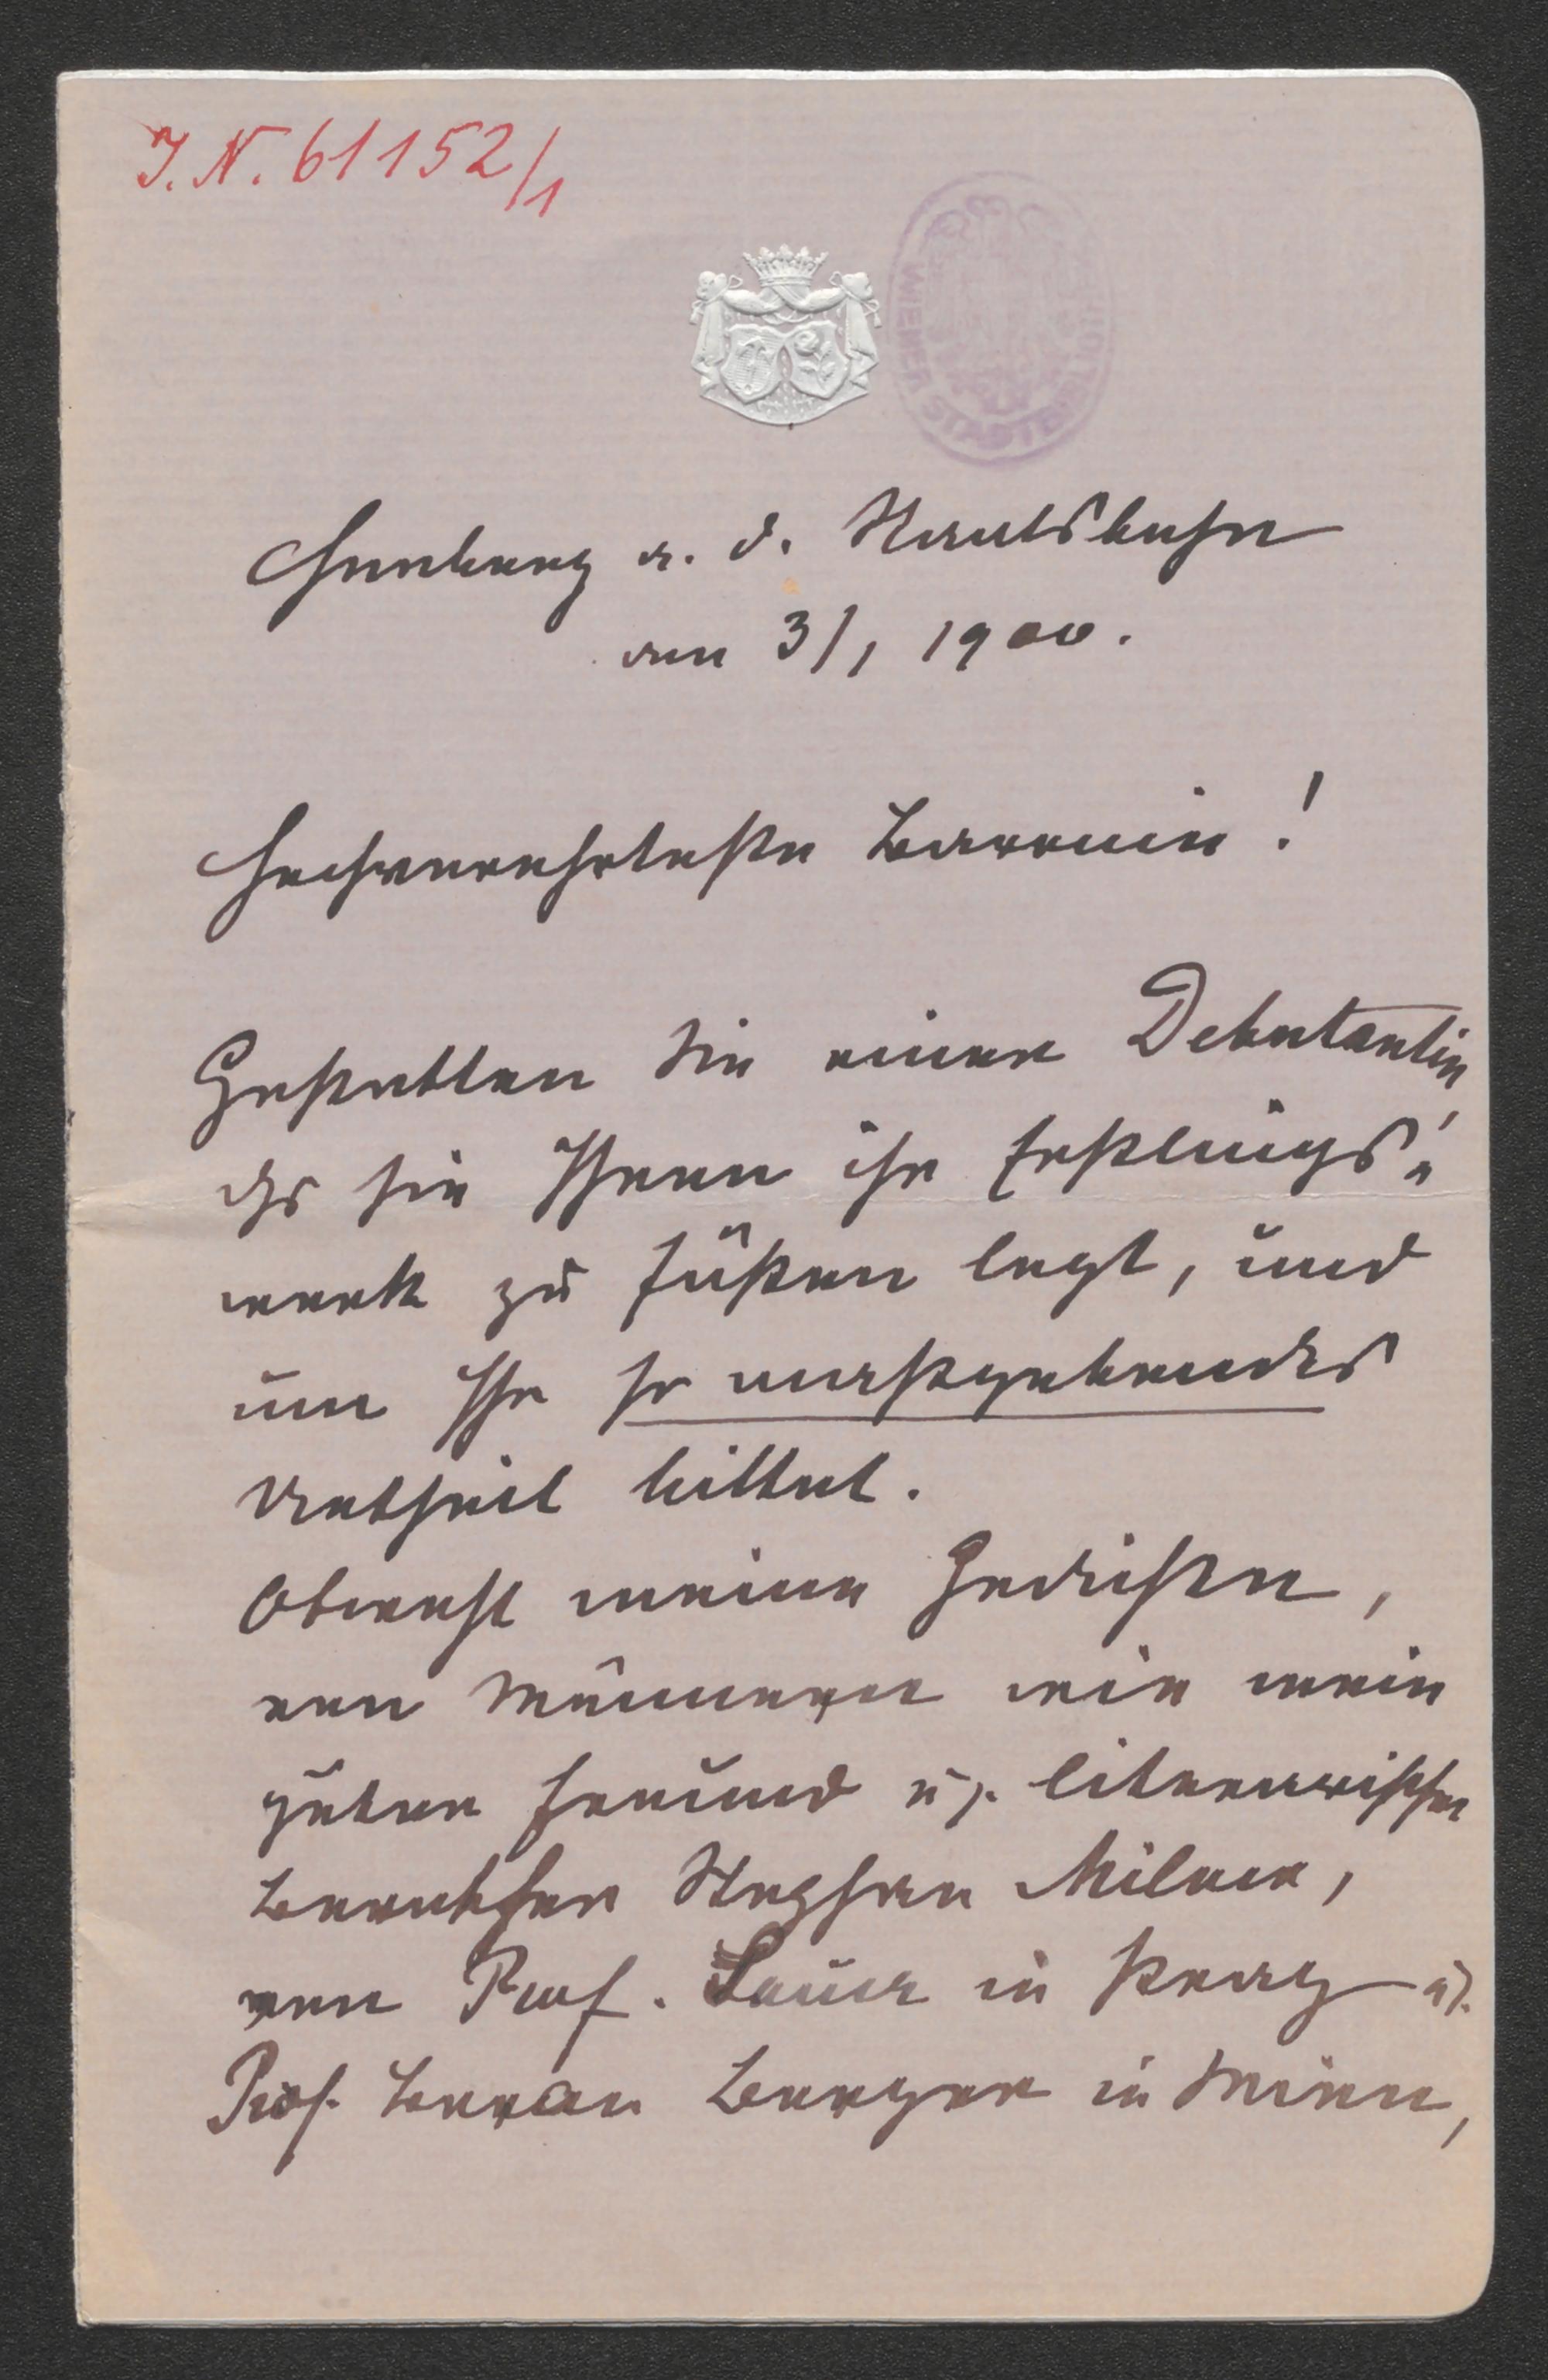 J. N. 61152/1
WIENER STADTBIBLIOTHEK
a. d. Staatsbahn
am 3/1 1900.
Hochverehrteste Baronin!
Gestatten Sie einer Debutantin
daß sie Ihnen ihr Erstlings-
werk zu Füßen legt, und
um Ihr so maßgebendes
Urtheil bittet.
Obwohl meine Gedichte,
von Männern wie mein
guter Freund u. literarischer
Berather Stephan Milow,
von Prof. Sauer in Prag u.
Prof. Baron Berger in Wien,